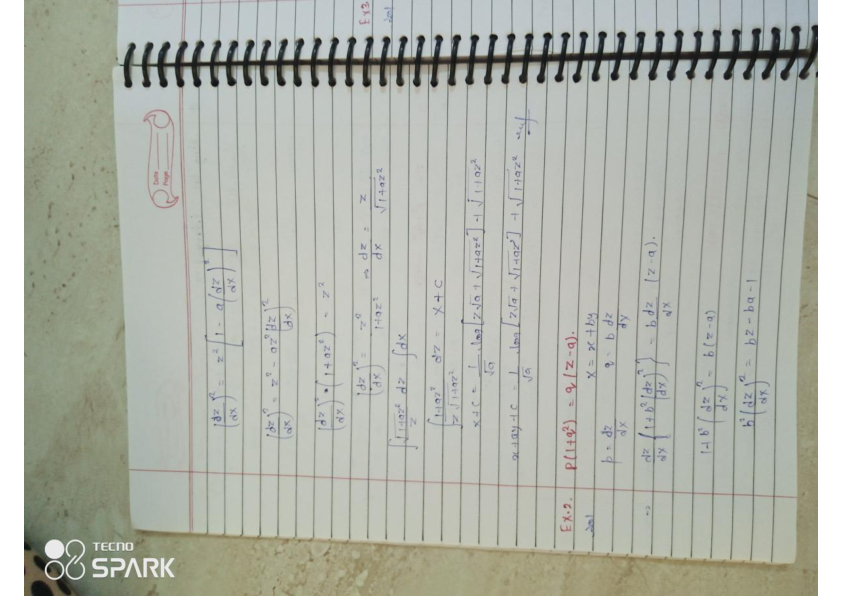 Date
Page
(dz/dx)² = z² [1 - a(dz/dx)²]
(dz/dx)² = z² - az²(dz/dx)²
(dz/dx)² • (1+az²) = z²
(dz/dx)² = z²/1+az² ⇒ dz/dx = z/√1+az²
∫ √1+az²/z dz = ∫dx
∫ 1+az²/z√1+az² dz = x+c
x+c = 1/√a log[z√a + √1+az²] + √1+az²
x+ay+c = 1/√a log[z√a + √1+az²] + √1+az²
Ex.2. P(1+q²) = q(z-a).
Sol
X = x+by
p = dz/dx q = b dz/dx
⇒ dz/dx {1+b²(dz/dx)²} = b dz/dx (z-a).
1+b²(dz/dx)² = b(z-a)
b²(dz/dx)² = bz-ba-1
Ex3
Sol
TECNO
SPARK